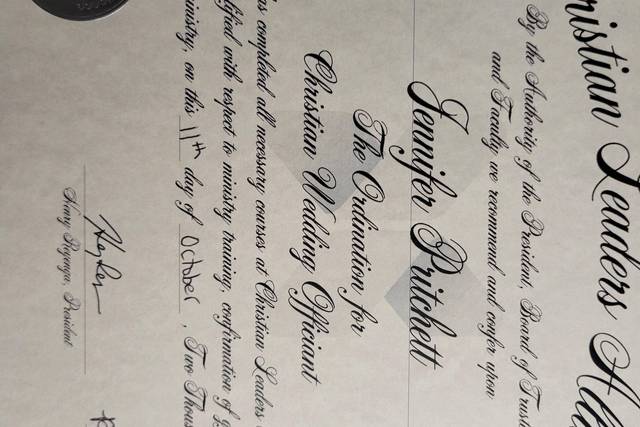 Christian Leaders All
By the Authority of the President, Board of Trust
and Faculty we recommend and confer upon
Jennifer Pritchett
The Ordination for
Christian Wedding Officiant
completed all necessary courses at Christian Leaders
with respect to ministry training, confirmation of
on this 11th day of October, Two Thous
Henry Reyenga, President